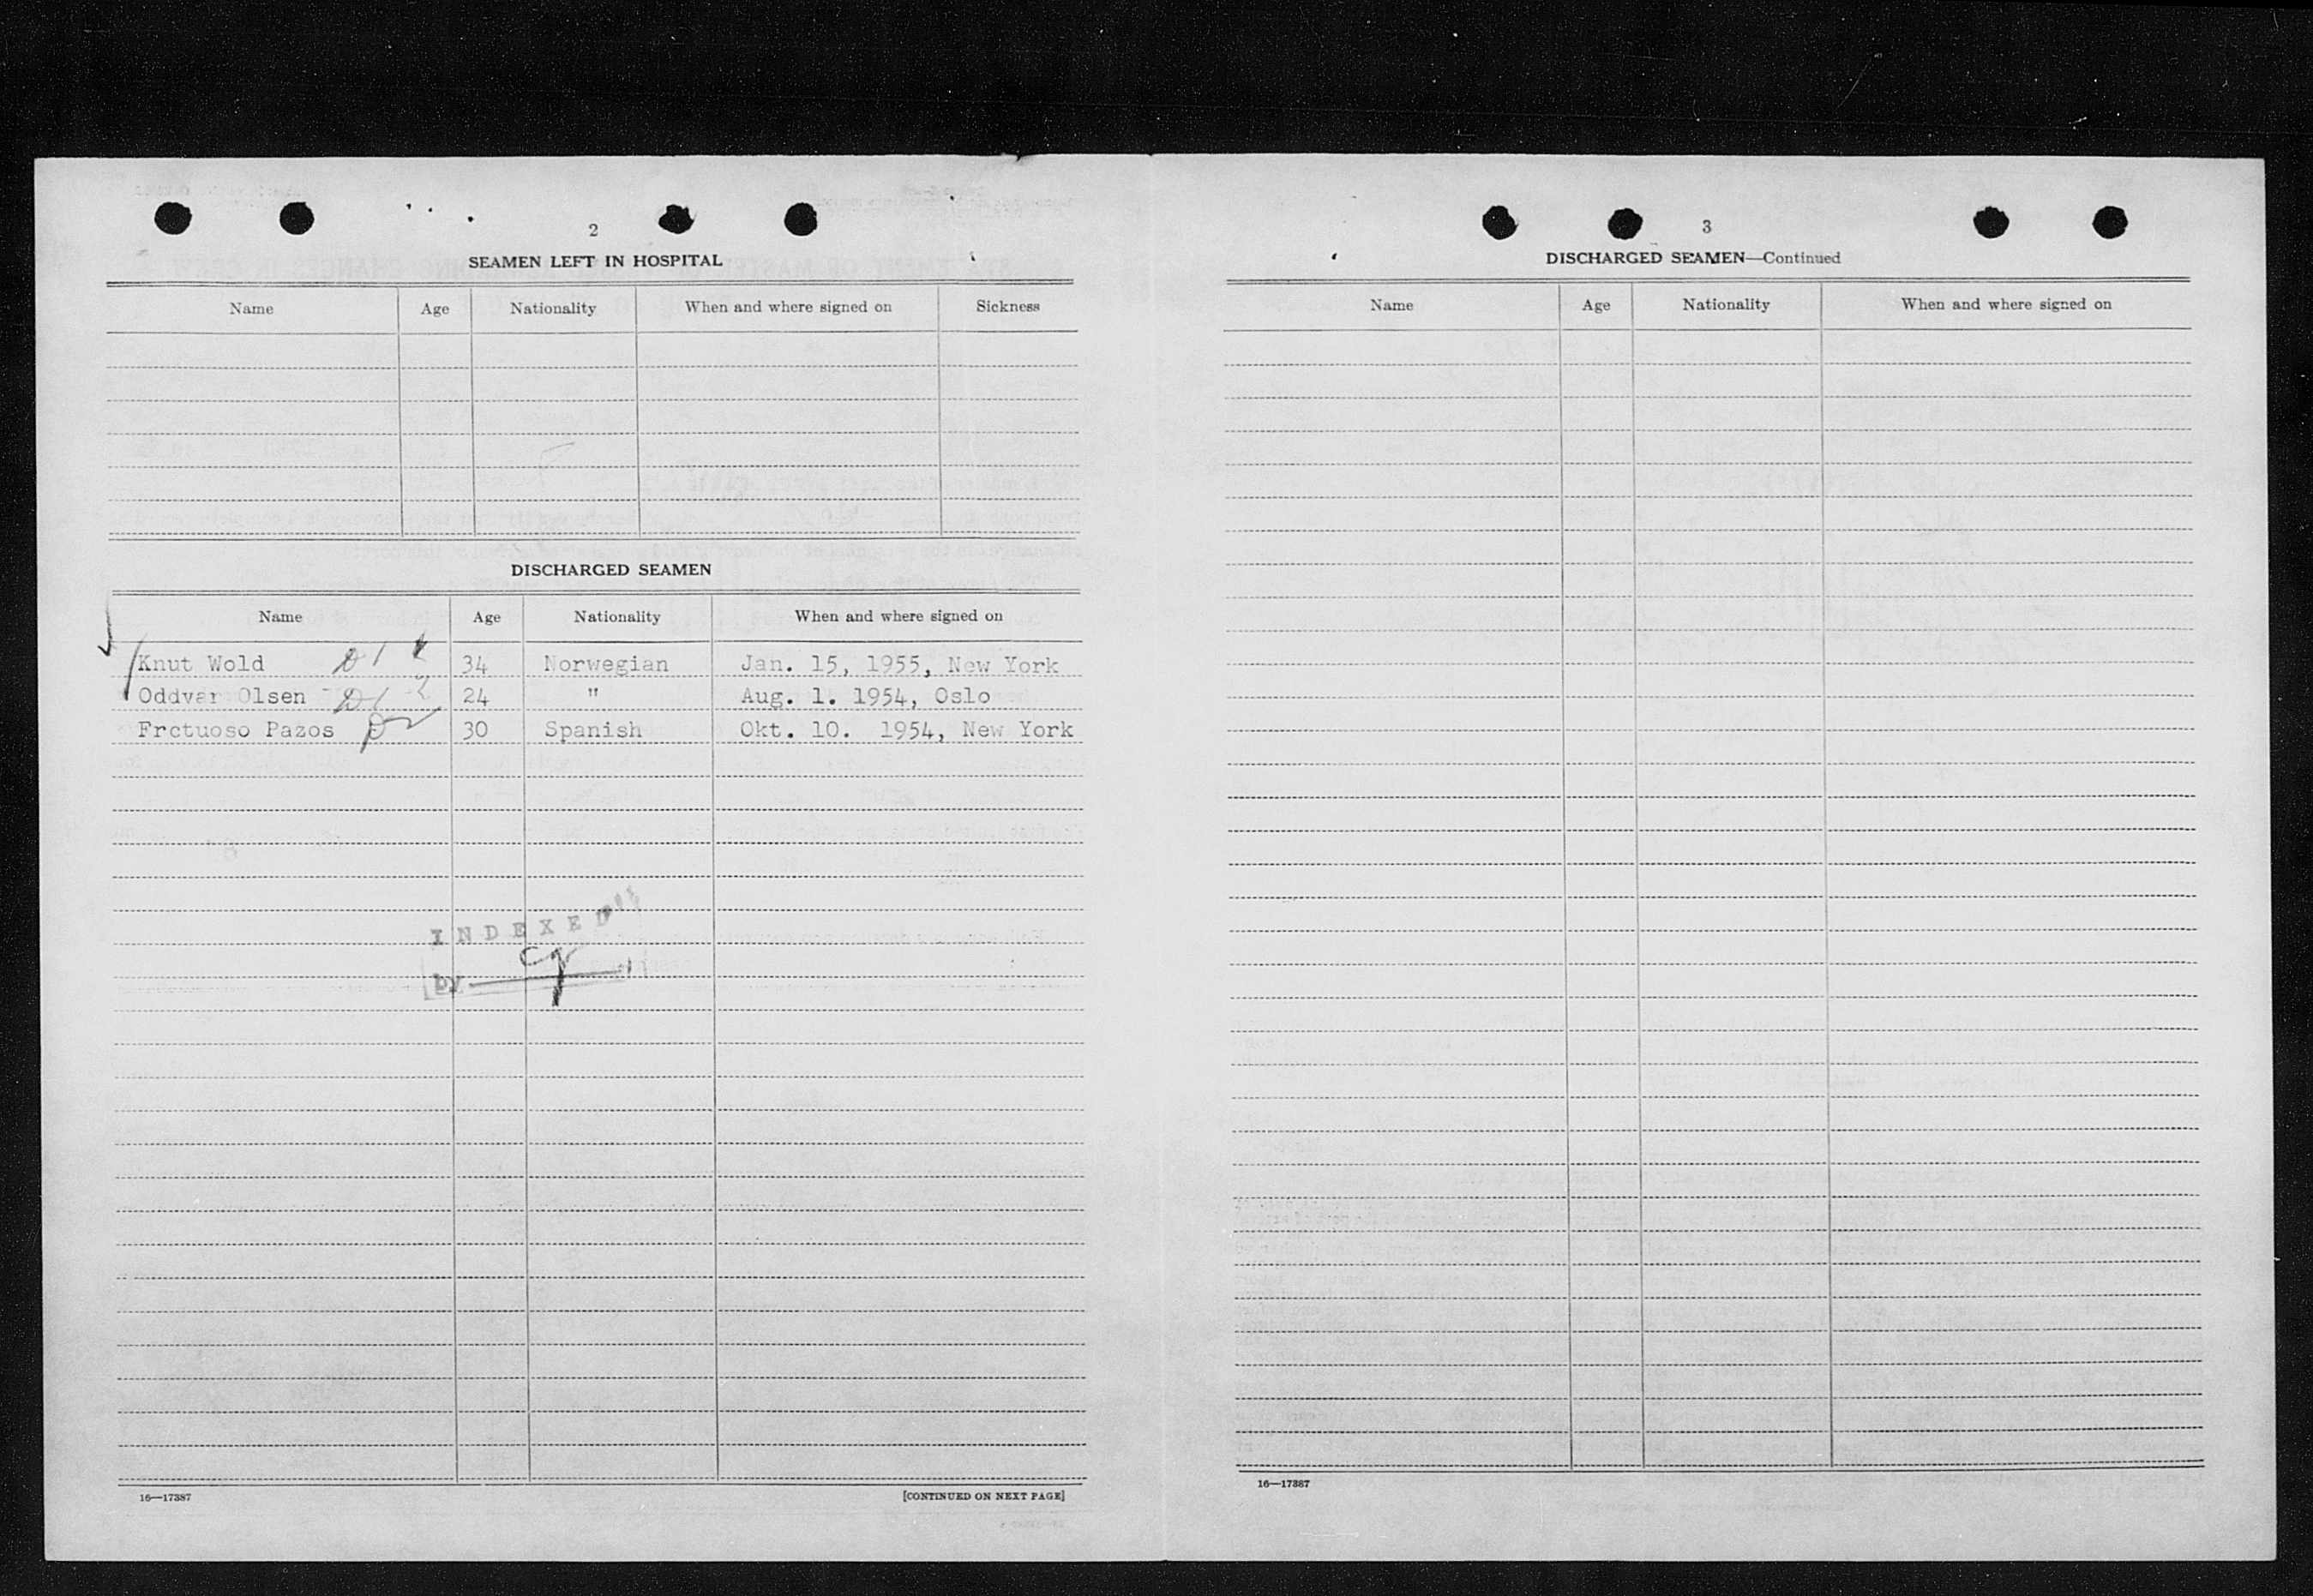 2
SEAMEN LEFT IN HOSPITAL
Name Age Nationality When and where signed on Sickness
DISCHARGED SEAMEN
Name Age Nationality When and where signed on
Knut Wold D1 34 Norwegian Jan. 15, 1955, New York
Oddvar Olsen D1 24 " Aug. 1. 1954, Oslo
Frctuoso Pazos 30 Spanish Okt. 10. 1954, New York
INDEXED
by
16—17387 [CONTINUED ON NEXT PAGE]
3
DISCHARGED SEAMEN—Continued
Name Age Nationality When and where signed on
16—17387